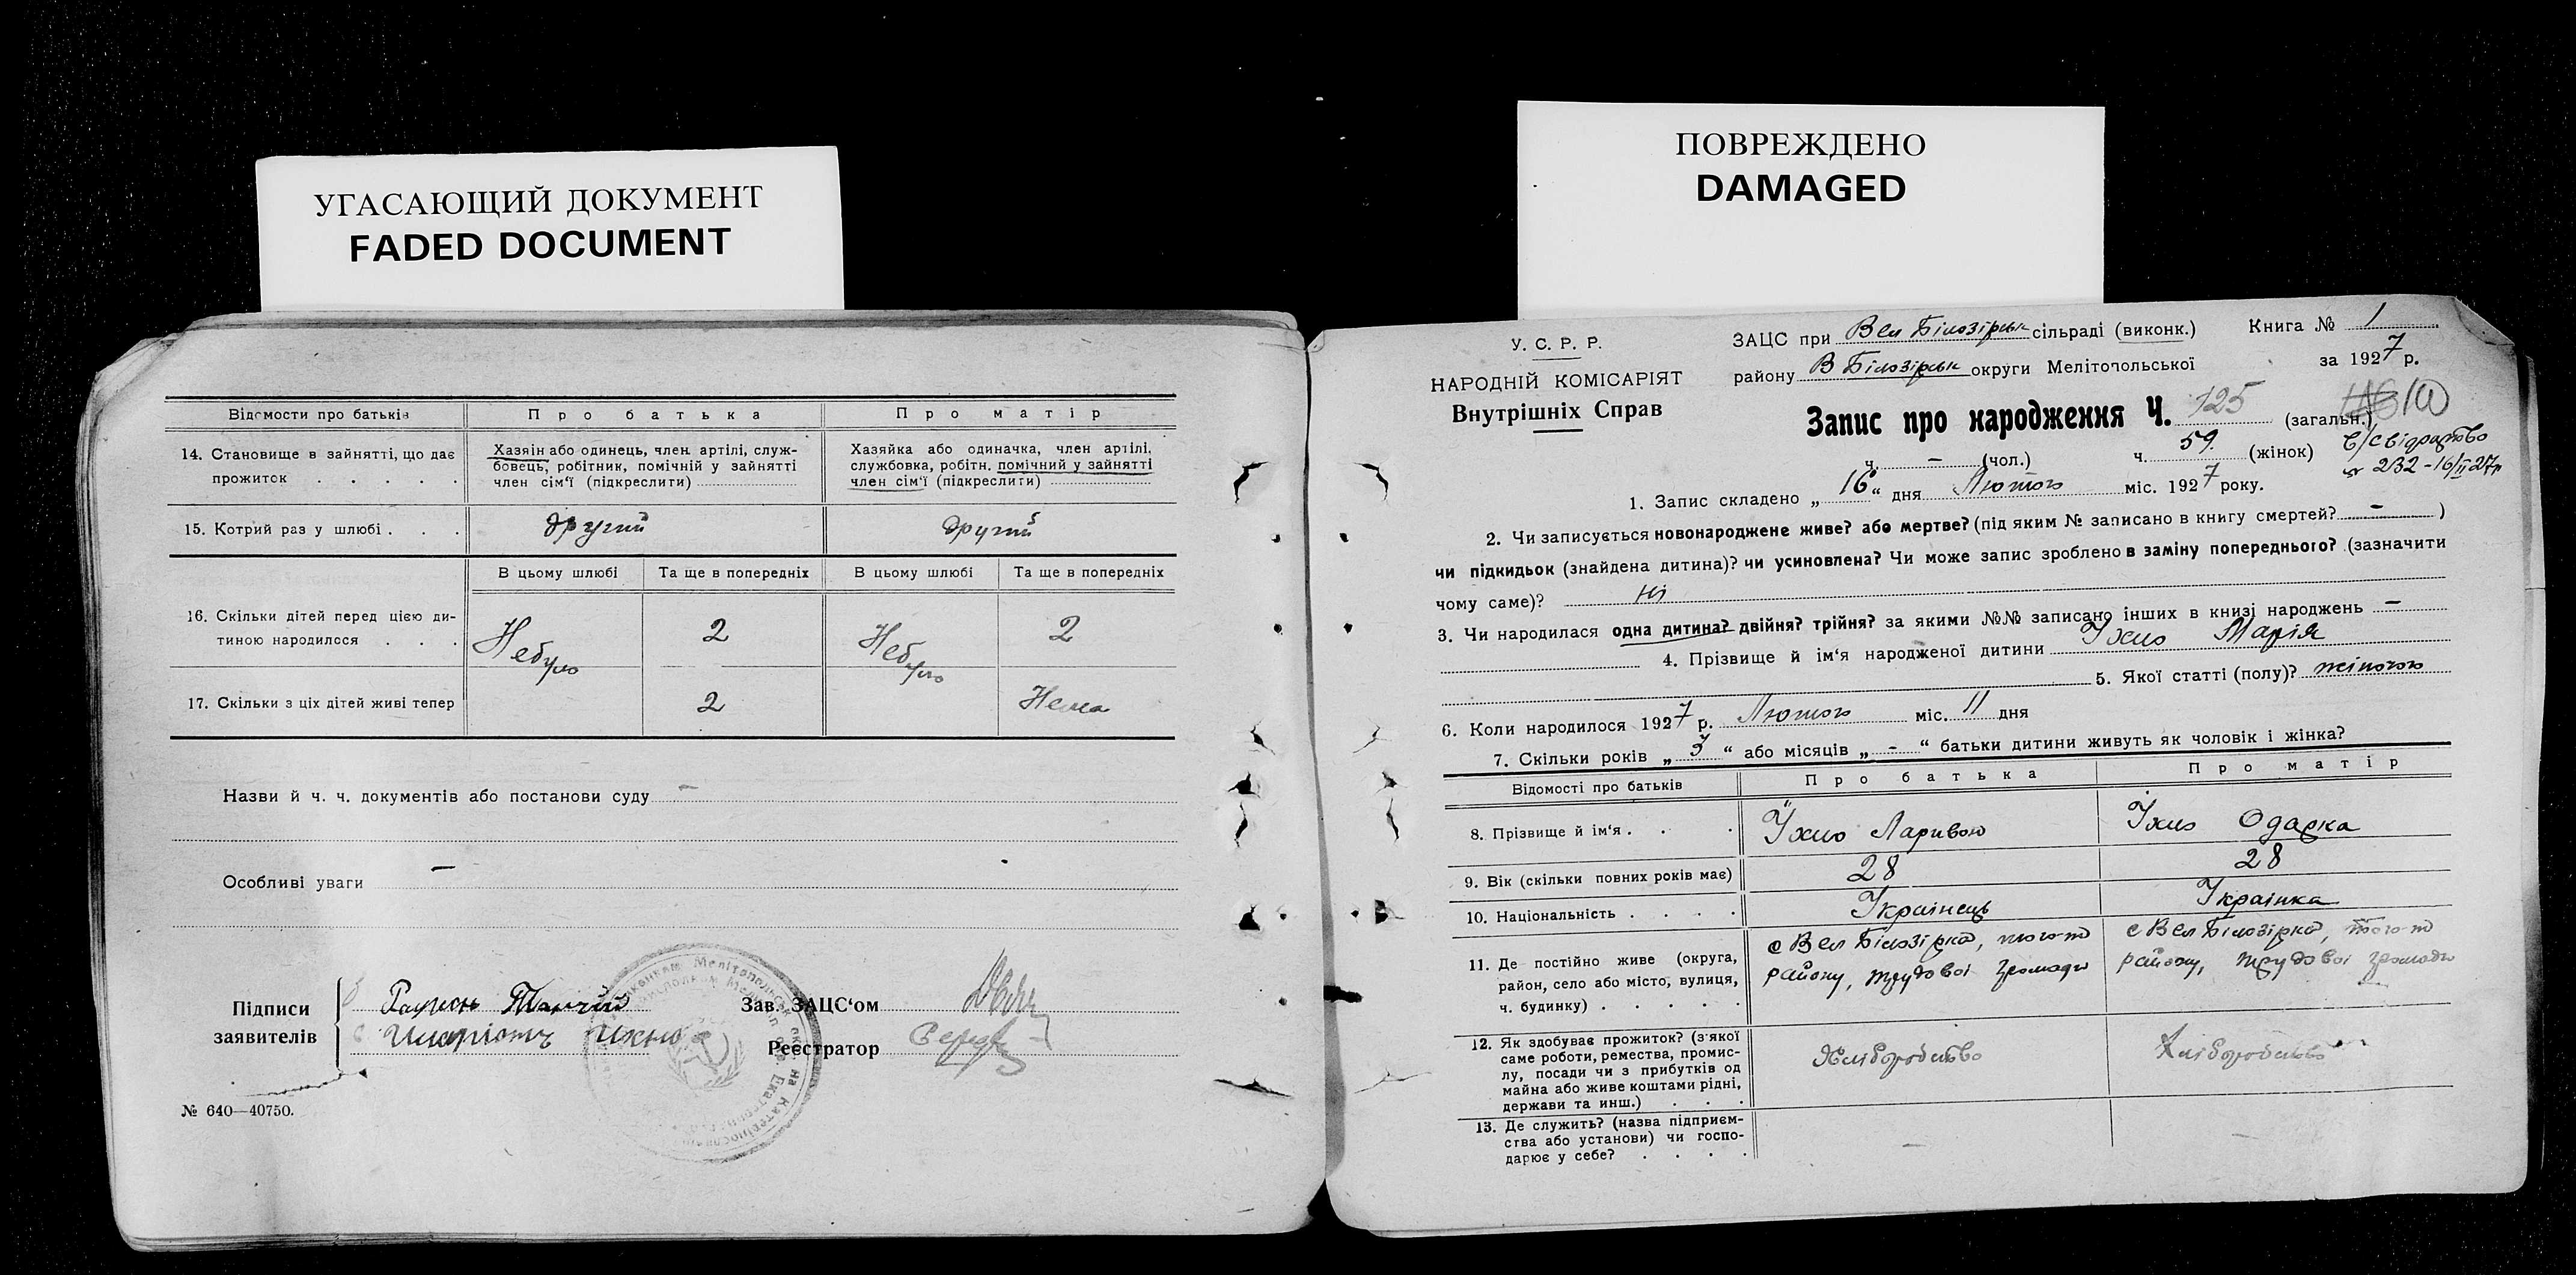 УГАСАЮЩИЙ ДОКУМЕНТ
FADED DOCUMENT
Відомости про батьків
Про батька
Про матір
14. Становище в зайнятті, що дає
прожиток . . . . .
Хазяїн або одинець, член артілі, служ-
бовець, робітник, помічній у зайнятті
член сім'ї (підкреслити)
Хазяйка або одиначка, член артілі,
службовка, робітн. помічний у зайнятті
член сім'ї (підкреслити)
15. Котрий раз у шлюбі . . .
другий
другий
В цьому шлюбі
Та ще в попередніх
В цьому шлюбі
Та ще в попередніх
16. Скільки дітей перед цією ди-
тиною народилося . . .
Небуло
2
Небуло
2
17. Скільки з ціх дітей живі тепер
2
Нема
Назви й ч. ч. документів або постанови суду –
Особливі уваги –
Підписи
заявителів
Ихно
Зав. ЗАЦС'ом
Реєстратор
№ 640—40750.
ПОВРЕЖДЕНО
DAMAGED
У. С. Р. Р.
НАРОДНІЙ КОМІСАРІЯТ
Внутрішніх Справ
ЗАЦС при Вел Білозірськ сільраді (виконк.)
Книга № 1
району В Білозірськ округи Мелітопольської
за 1927 р.
Запис про народження Ч. 125 (загальн.)
ч. – (чол.) ч. 59. (жінок)
В/Свідоцтво
№ 232-16/II 27р
1. Запис складено „16“ дня Лютого міс. 1927 року.
2. Чи записується новонароджене живе? або мертве? (під яким № записано в книгу смертей? – )
чи підкидьок (знайдена дитина)? чи усиновлена? Чи може запис зроблено в заміну попереднього? (зазначити
чому саме)? ні
3. Чи народилася одна дитина? двійня? трійня? за якими №№ записано інших в книзі народжень –
4. Прізвище й ім'я народженої дитини Їхно Марія
5. Якої статті (полу)? жіночою
6. Коли народилося 1927 р. Лютого міс. 11 дня
7. Скільки років „3“ або місяців „-“ батьки дитини живуть як чоловік і жінка?
Відомості про батьків
Про батька
Про матір
8. Прізвище й ім'я . . .
Їхно Ларивон
Їхно Одарка
9. Вік (скільки повних років має)
28
28
10. Національність . . . .
Українець
Українка
11. Де постійно живе (округа,
район, село або місто, вулиця,
ч. будинку) . . . . .
с Вел Білозірка, того-ж
району, трудової громади
с Вел Білозірка, того-ж
району, трудової громади
12. Як здобуває прожиток? (з'якої
саме роботи, ремества, промис-
лу, посади чи з прибутків од
майна або живе коштами рідні,
держави та инш.) . . .
Хліборобство
Хліборобство
13. Де служить? (назва підприєм-
ства або установи) чи госпо-
дарює у себе? . . . .
–
–